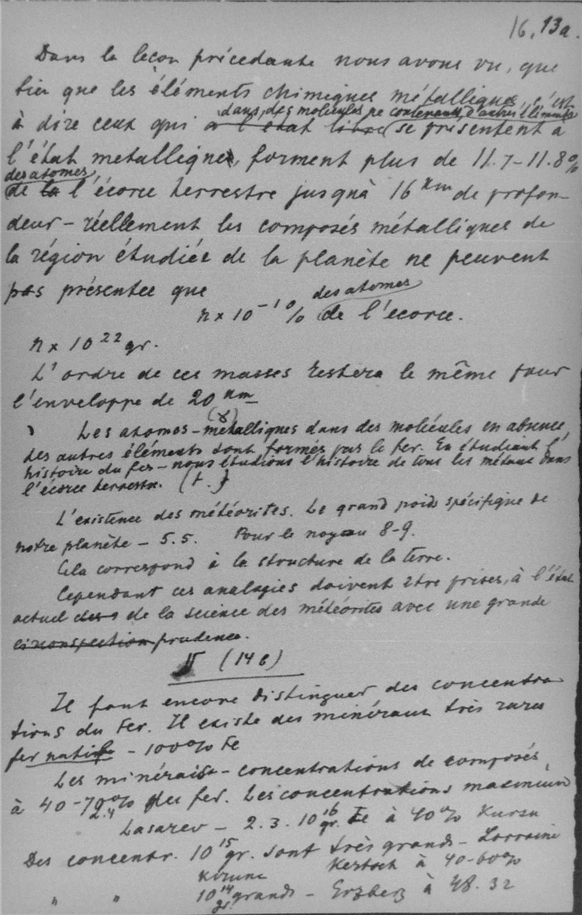 16. 13a.
Dans la leçon précédante nous avons vu, que
bien que les éléments chimiques métalliques, c'est
dans des molécules ne contenants d'autres éléments
à dire ceux qui a l'état libre se présentent à
l'état metallique, forment plus de 11.7-11.8%
des atomes
de la l'écorce terrestre jusqu'à 16 km de profon-
deur – réellement les composés métalliques de
la région étudiée de la planète ne peuvent
pas présenter que
n x 10^-1 % des atomes de l'écorce.
n x 10^22 gr.
L'ordre de ces masses restera le même pour
l'enveloppe de 20 km
Les atomes-métalliques dans des molécules en absence
des autres éléments sont formés par le fer. En étudiant l'
histoire du fer – nous étudions l'histoire de tous les métaux dans
l'écorce terrestre.
L'existence des météorites. Le grand poid spécifique de
notre planète – 5.5. Pour le noyau 8-9.
Cela correspond à la structure de la terre.
Cependant ces analogies doivent être prises, à l'état
actuel de la science des météorites avec une grande
circonspection prudence.
II (14 c)
Il faut encore distinguer des concentra-
tions du Fer. Il existe des minéraux très rares
fer natif – 100% Fe
Les minérais – concentrations de composés
à 40-70% du fer. Les concentrations maximum
2.4
Lasarev – 2.3. 10^16 gr. Fe à 40% Kursu
Des concentr. 10^15 gr. sont très grands – Lorraine
Kiruna Kertsch à 40-60%
" " 10^14 gr. grands – Erzberg à 48.32